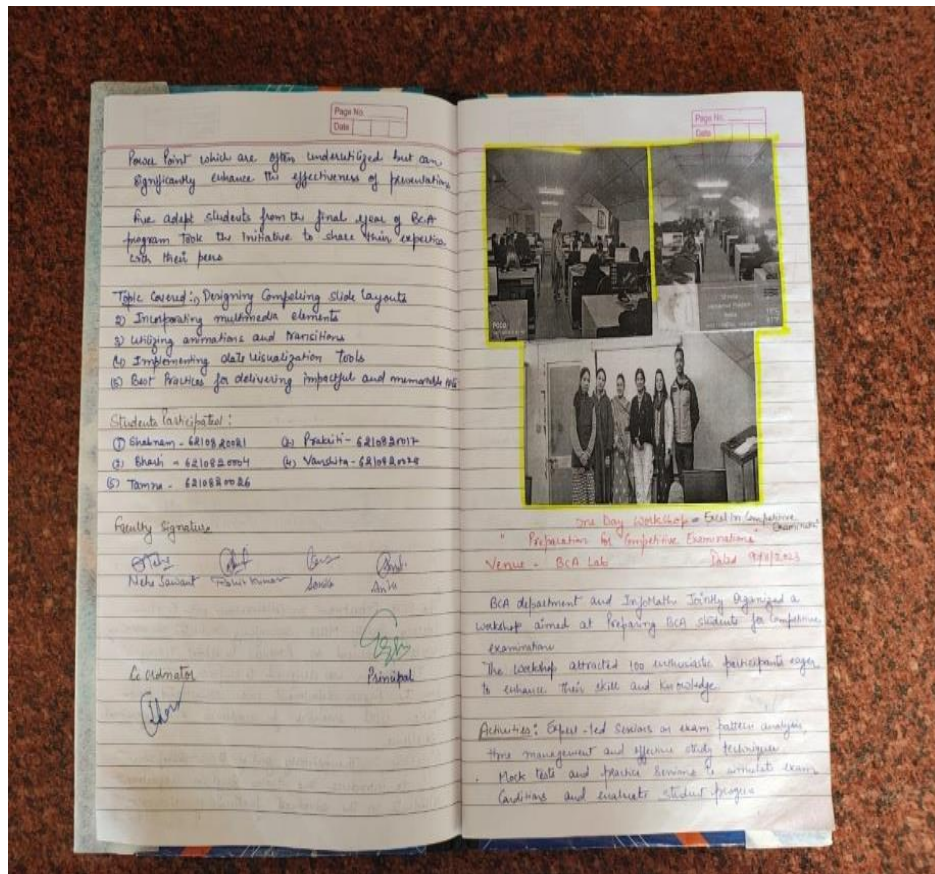 Page No.
Date
Power Point which are often underutilized but can
significantly enhance the effectiveness of presentations
Five adept students from the final year of BCA
program Took the Initiative to share their expertise
with their peers
Topic Covered: 1) Designing Compelling slide layouts
2) Incorporating multimedia elements
3) Utilizing animations and transitions
(4) Implementing data visualization Tools
(5) Best Practices for delivering impactful and memorable
Students Participated:
① Shabnam - 6210820021 (2) Prakriti - 6210820017
(3) - 6210820004 (4) Vanshita - 6210820028
(5) Tamna - 6210820026
Faculty Signature
Neha Sawant Kumar
Co ordnator Principal
Page No.
Date
POCO
One Day Workshop - Excel In Competitive
Examinations
"Preparation for Competitive Examinations"
Venue - BCA Lab Dated
BCA department and InfoMaths Jointly Organized a
workshop aimed at Preparing BCA students for Competitive
examinations
The workshop attracted 100 enthusiastic participants eager
to enhance their skill and Knowledge.
Activities: Expert-led Sessions on exam pattern analysis,
time management and effective study techniques.
. Mock tests and practice Sessions to simulate exam
Conditions and evaluate student progress